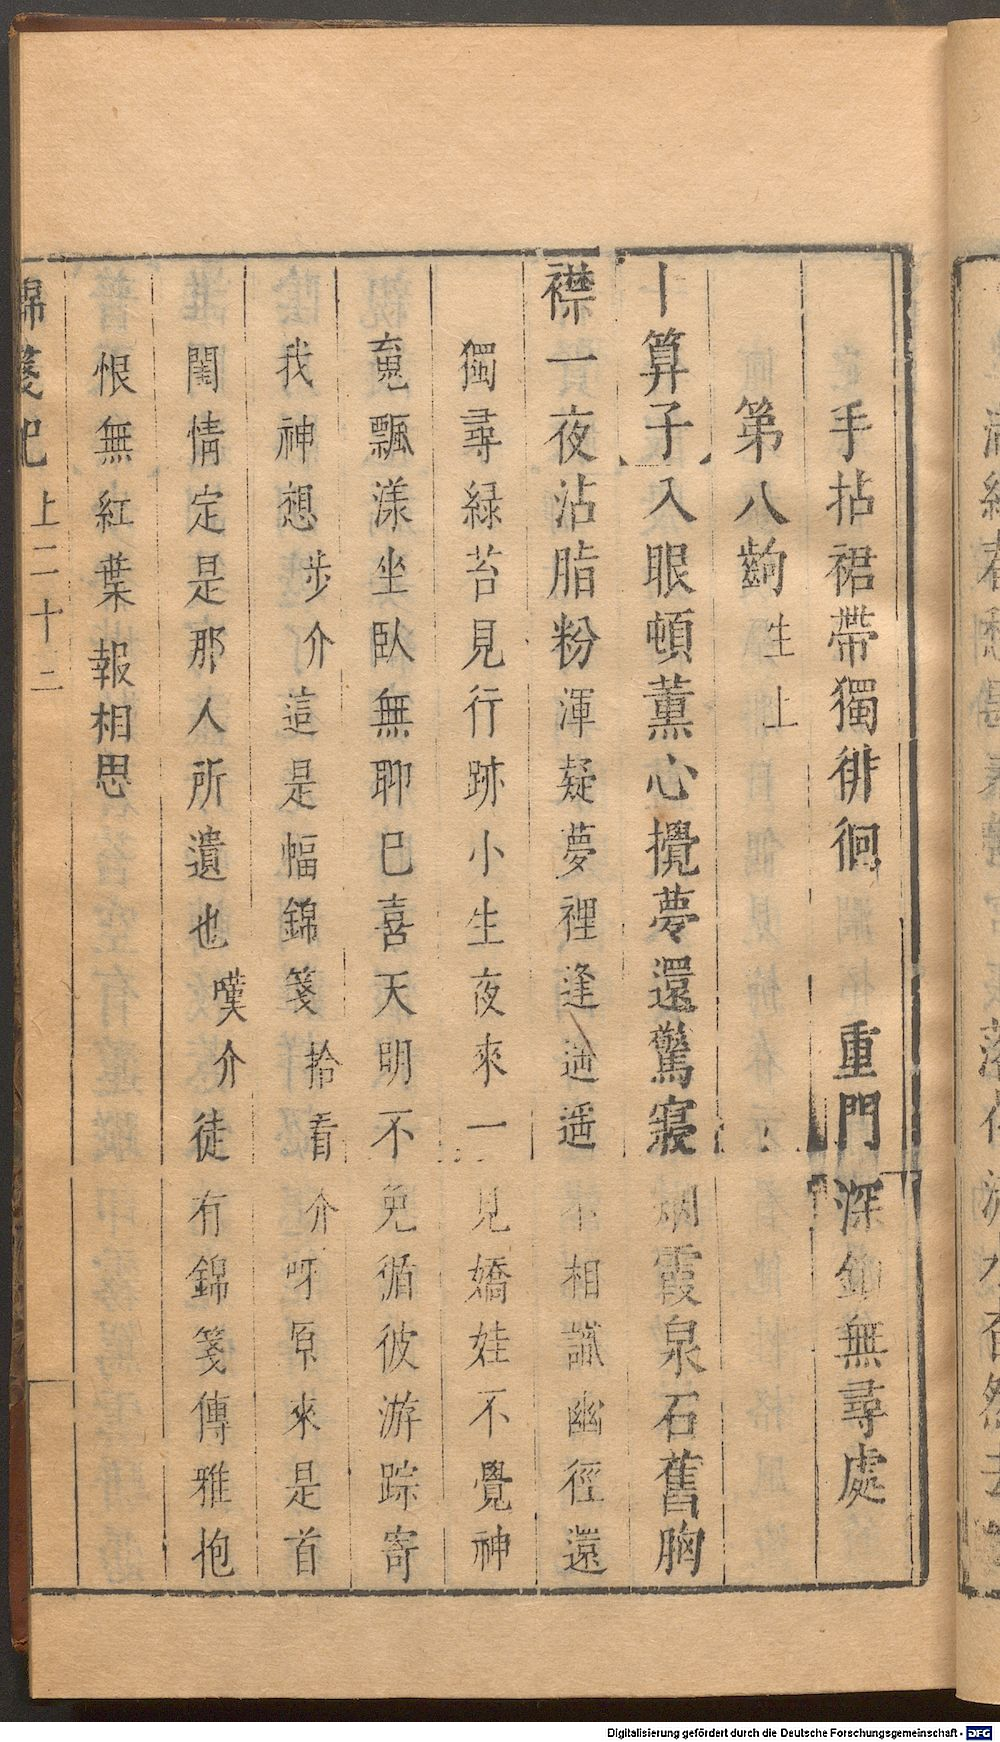 手拈裙帶獨徘徊　重門深鎖無尋處
第八齣　生上
卜算子　入眼頓薰心攪夢還驚寢烟霞泉石舊胸
襟一夜沾脂粉渾疑夢裡逢迤逦不相識幽徑還
獨尋緑苔見行跡小生夜來一見嬌娃不覺神
䰟飄漾坐臥無聊巳喜天明不免循彼游踪寄
我神想步介這是幅錦箋拾看介呀原來是首
閨情定是那人所遺也嘆介徒有錦箋傳雅抱
恨無紅葉報相思
錦箋記　上二十二
Digitalisierung gefördert durch die Deutsche Forschungsgemeinschaft - DFG